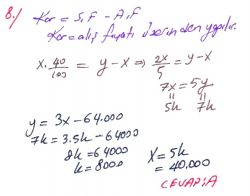 8./ Kar = S.F - A.F
Kar = alış fiyatı üzerinden yapılır.
x. 40/100 = y - x ⇒ 2x/5 = y - x
7x = 5y
5k 7k
y = 3x - 64.000
7k = 3.5k - 64000
8k = 64000
k = 8000
x = 5k
= 40.000
CEVAP: A